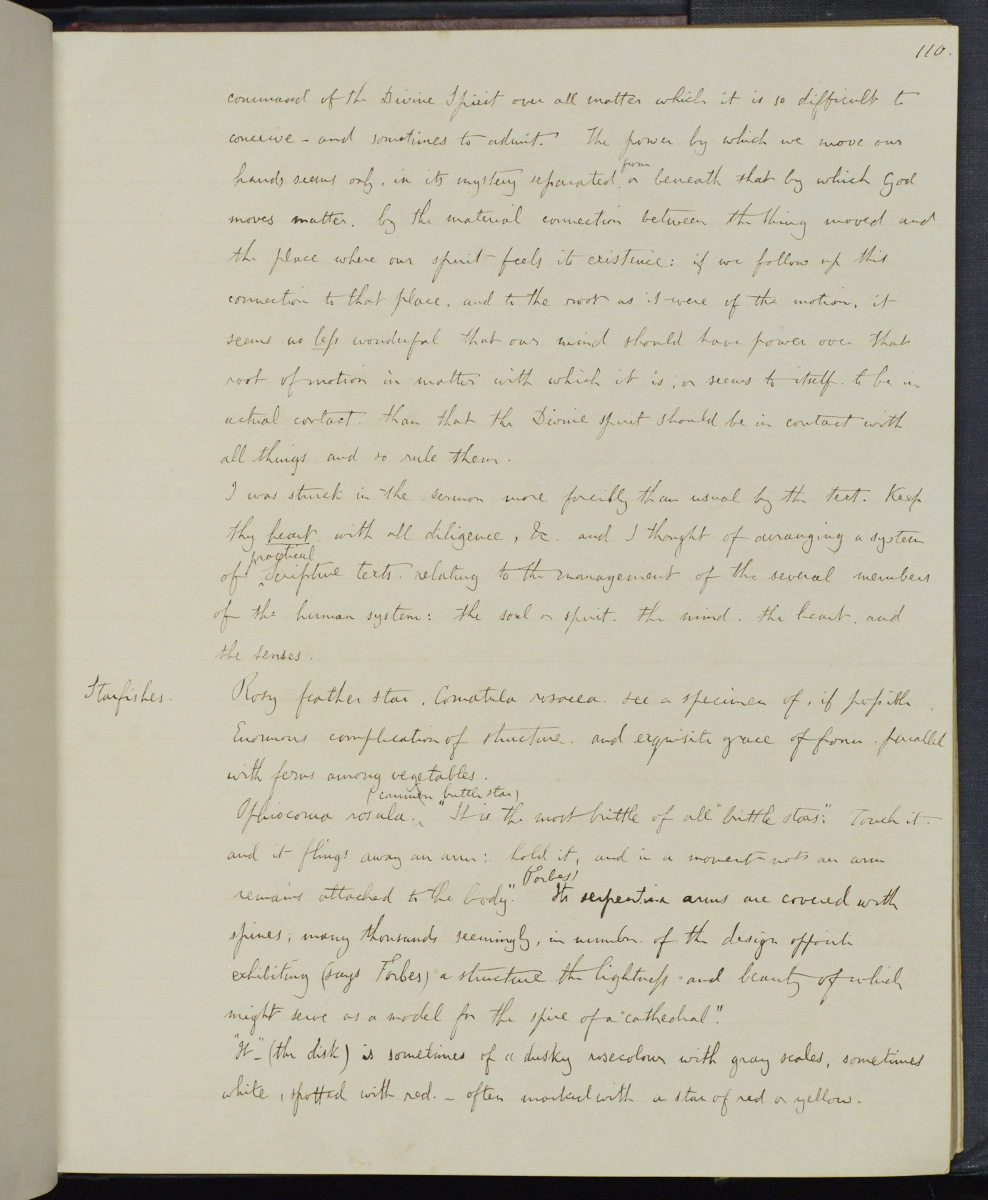 110.
command of the Divine Spirit over all matter which it is so difficult to
conceive - and sometimes to admit. The power by which we move our
from
hands seems only, in its mystery separated, or beneath that by which God
moves matter, by the material connection between the thing moved and
the place where our spirit feels its existence: if we follow up this
connection to that place, and to the root as it were of the motion, it
seems no less wonderful that our mind should have power over that
root of motion in matter with which it is, or seems to itself to be in
actual contact, than that the Divine spirit should be in contact with
all things and so rule them.
I was struck in the sermon more forcibly than usual by the text. Keep
thy heart with all diligence, &c. and I thought of arranging a system
practical
of Scripture texts relating to the management of the several members
of the human system: the soul or spirit. the mind. the heart. and
the senses.
Starfishes. Rosy feather star, Comatula rosacea. see a specimen of, if possible.
Enormous complication of structure. and exquisite grace of form. parallel
with ferns among vegetables.
(common brittle star)
Ophiocoma rosula. "It is the most brittle of all "brittle stars": Touch it -
and it flings away an arm: hold it, and in a moment not an arm
Forbes)
remains attached to the body". Its serpentine arms are covered with
spines; many thousands seemingly, in number. of the design opposite
exhibiting (says Forbes) a structure the lightness and beauty of which
might serve as a model for the spire of a "cathedral".
"It" - (the disk) is sometimes of a dusky rosecolour with gray scales, sometimes
white, spotted with red. - often marked with a star of red or yellow.